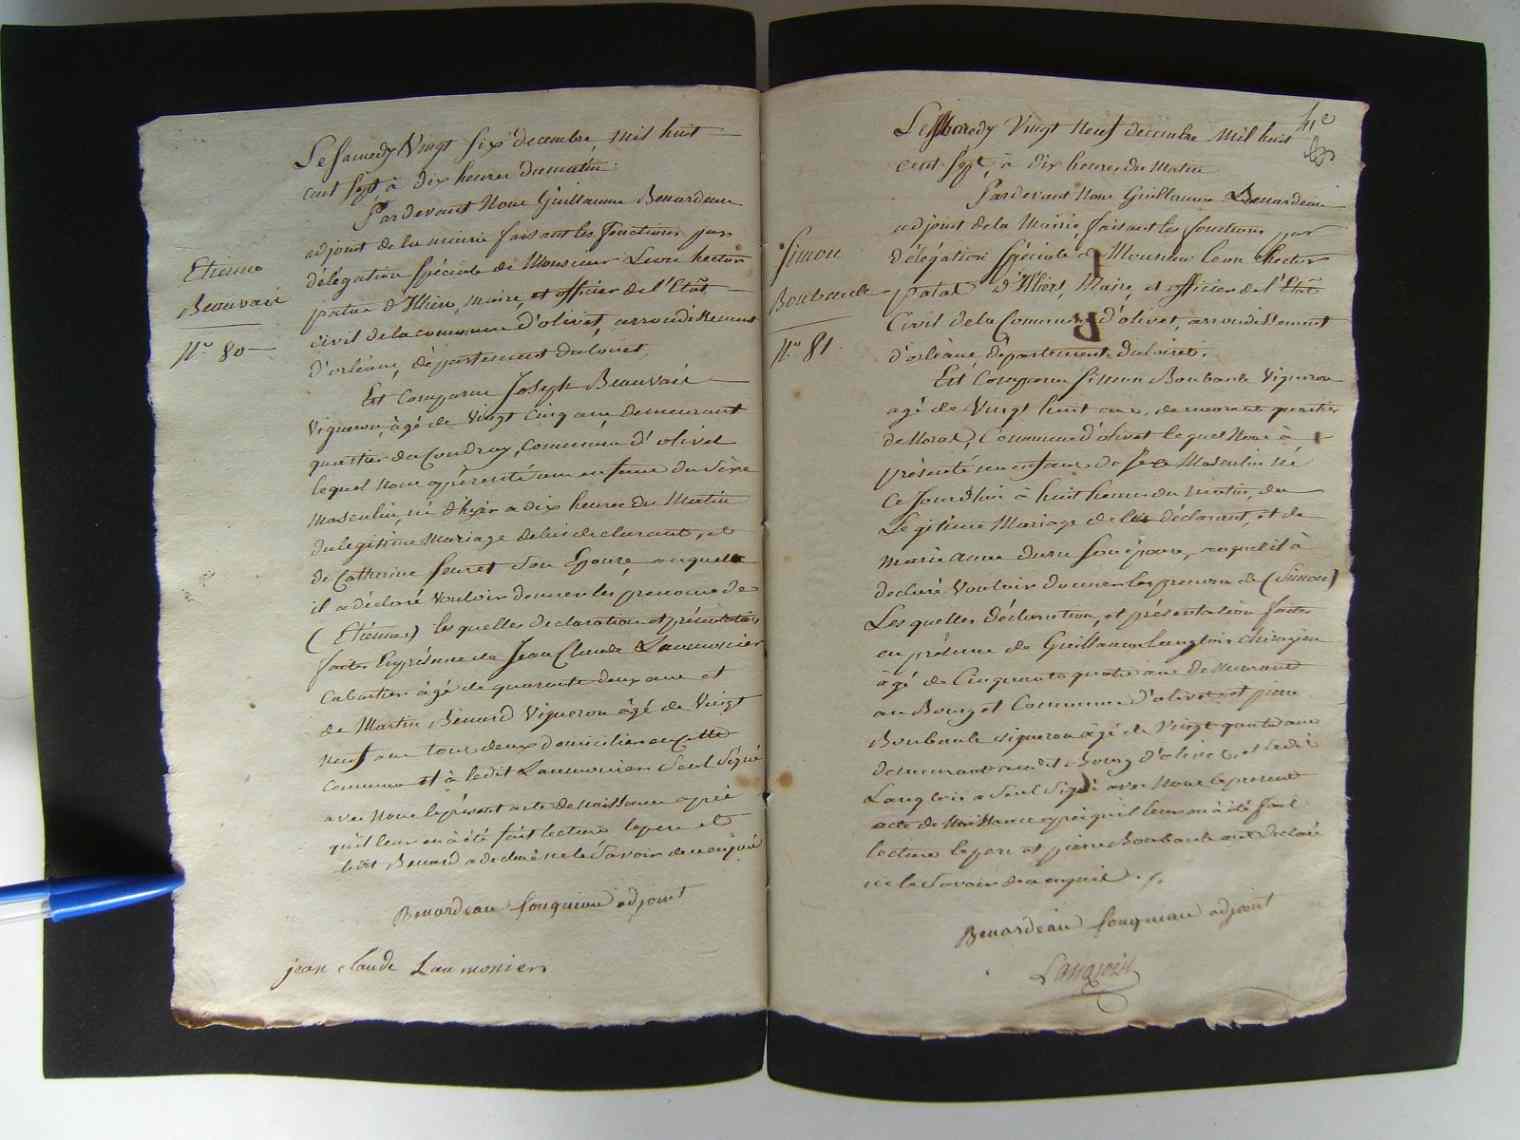 Le Samedy Vingt Six decembre, mil huit
cent Sept à dix heures du matin.
Pardevant Nous Guillaume Benardeau
adjoint de la mairie faisant les fonctions par
délégation Spéciale de Monsieur Leon hector
patas d'Illiers, Maire, et officier de l'Etat
civil de la commune d'olivet, arrondissement
d'orléans, département du loiret,
Est Comparu Joseph Beauvais
Vigneron, âgé de Vingt Cinq ans, demeurant
quartier du Coudray, Commune d'olivet
lequel Nous a présenté un enfant du Sèxe
Masculin, né d'hyer a dix heures du Matin
du legitime Mariage de lui declarant, et
de Catherine Son Epouse, auquel
il a déclaré Vouloir donner les prenoms de
(Etienne) les quelles declaration et présentation
faites En présence de Jean Claude Laumonier
Cabartier âgé de quarante deux ans et
de Martin Benard Vigneron âgé de Vingt
Neuf ans tous deux domiciliés en Cette
Commune et à ledit Laumonier Seul Signé
avec Nous le présent acte de Naissance après
qu'il leur en à été fait lecture le pere et
ledit Benard a declaré ne le Savoir de ce enquis
Benardeau adjoint
jean claude Laumonier
Etienne
Beauvais
No. 80
41e
Le Mardy Vingt Neuf decembre Mil huit
cent Sept, à dix heures du Matin
Pardevant Nous Guillaume Benardeau
adjoint de la Mairie, faisant les fonctions par
délégation Spéciale de Monsieur Leon Hector
patas d'Illiers, Maire, et officier de l'Etat
Civil de la Commune d'olivet, arrondissement
d'orléans, département du loiret.
Est Comparu Simon Boubault Vigneron
agé de Vingt huit ans, demeurant quartier
Commune d'olivet lequel Nous à
présenté un enfant de Sexe Masculin né
Ce Jourd'hui à huit heures du Matin, du
Legitime Mariage de lui déclarant, et de
Marie anne Son épouse, auquel il à
declaré Vouloir donner les prenoms de (Simon)
Les quelles Déclaration, et présentation faites
en présence de Guillaume Langlois chirurgien
âgé de Cinquante quatre ans demeurant
au Bourg et Commune d'olivet et pierre
Boubault vigneron âgé de Vingt quatre ans
demeurant audit Bourg d'olivet, et ledit
Langlois a Seul Signé avec Nous le présent
acte de Naissance après qu'il leur en à été fait
lecture le pere et pierre Boubault ont declaré
ne le Savoir de ce enquis ./.
Benardeau adjoint
Langlois
Simon
Boubault
No. 81